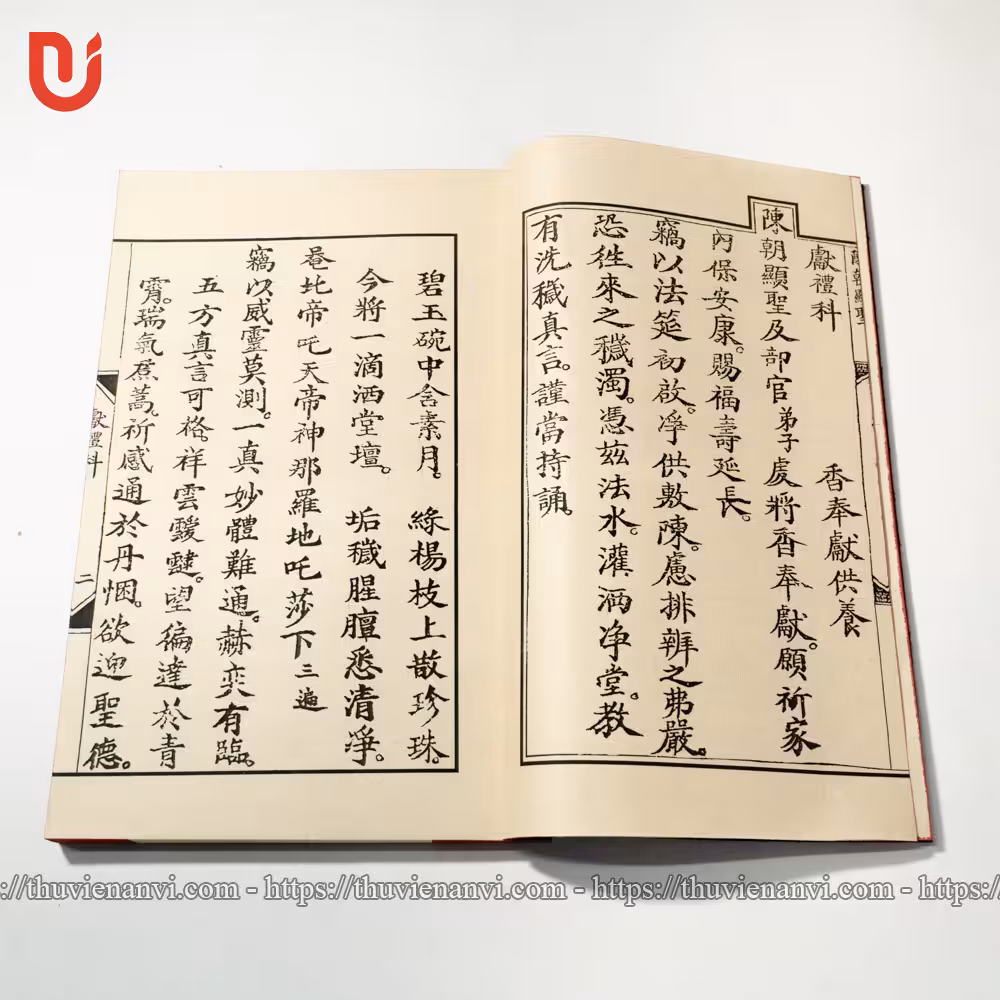 陳朝顯聖
獻禮科
香奉獻供養
陳朝顯聖及部官弟子虔將香奉獻。願祈家
內保安康。賜福壽延長。
竊以法筵初啟。淨供敷陳。慮排辨之弗嚴。
恐徃來之穢濁。憑茲法水。灌洒净堂。教
有洗穢真言。謹當持誦。
碧玉碗中含素月。綠楊枝上散珍珠。
今將一滴洒堂壇。垢穢腥膻悉清淨。
唵比帝吒天帝神那羅地吒莎下三遍
竊以威靈莫測。一真妙體難通。赫奕有臨。
五方真言可格。祥雲靉靆。望徧達於青
霄。瑞氣焄蒿。祈感通於丹悃。欲迎聖德。
獻禮科
二
https://thuvienanvi.com - https://thuvienanvi.com - https://thuvienanvi.com - https://